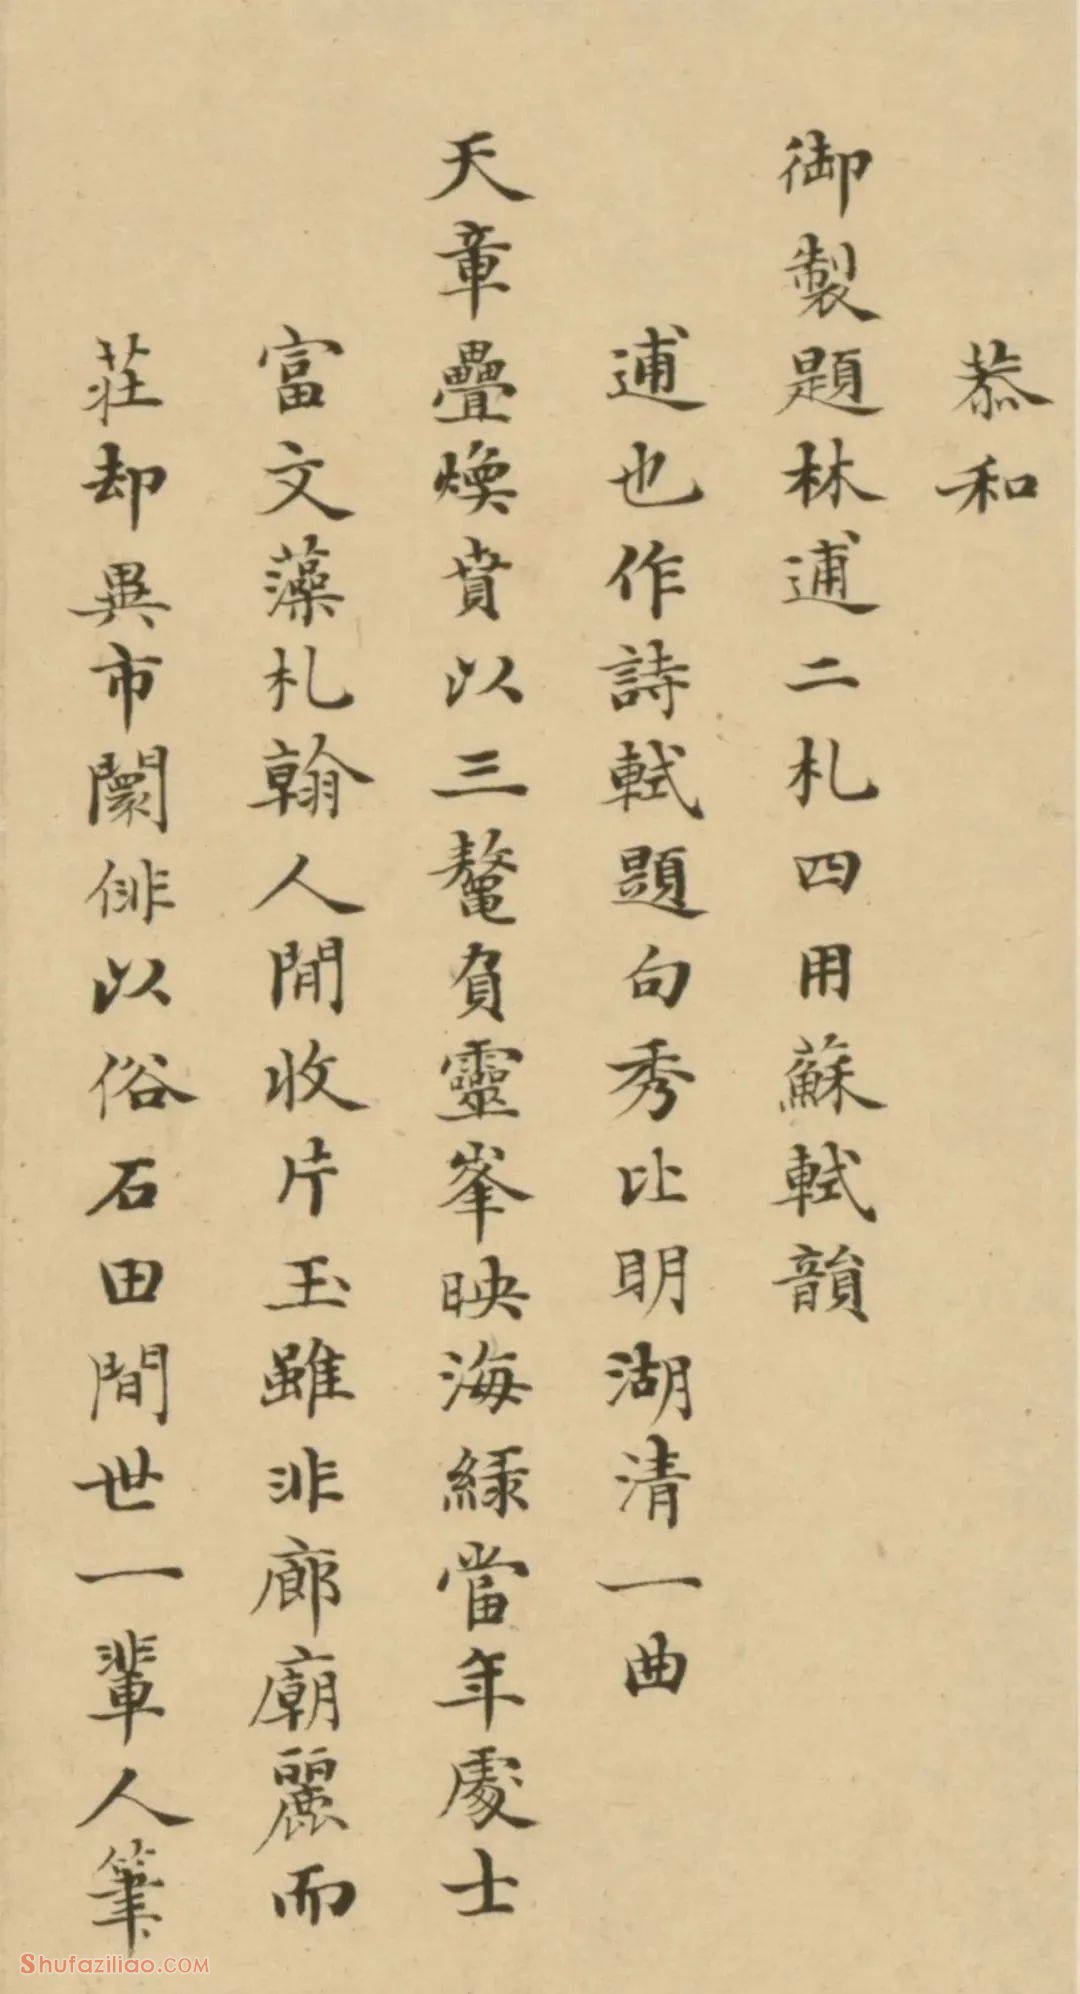 恭和
御製題林逋二札四用蘇軾韻
逋也作詩軾題句秀比明湖清一曲
天章疊煥賁以三鼇負靈峯映海綠當年處士
富文藻札翰人間收片玉雖非廊廟麗而
莊却異市闤俳以俗石田閒世一輩人筆
Shufaziliao.COM